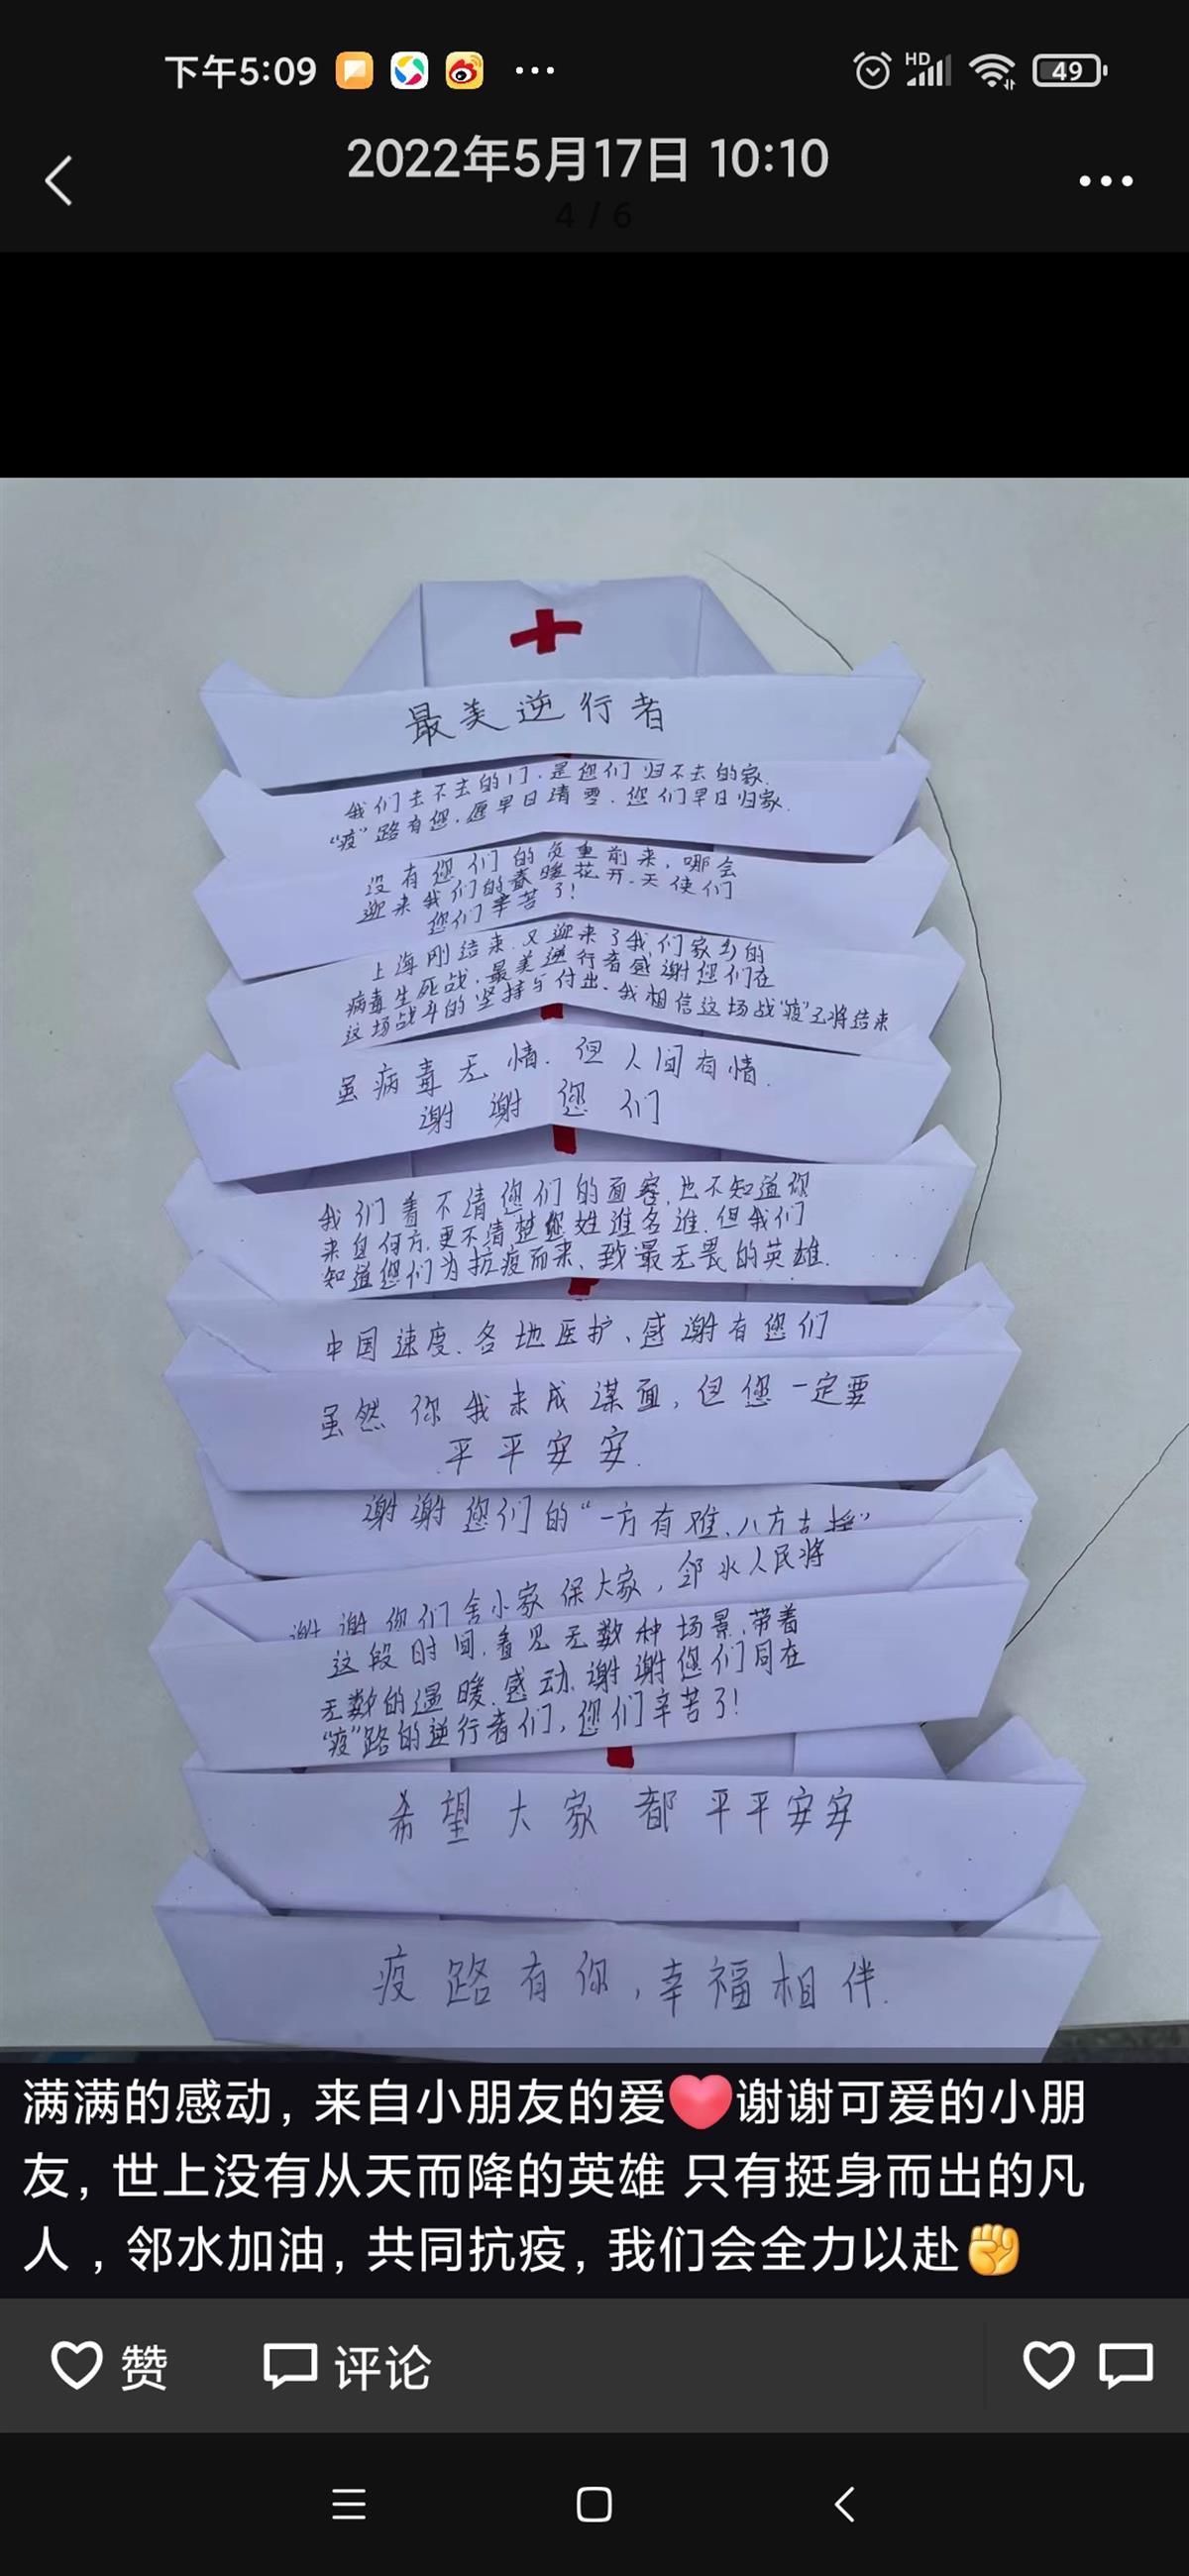 下午5:09
HD
49
2022年5月17日 10:10
4 / 6
最美逆行者
我们去不去的门,是您们归不去的家.
“疫”路有您.愿早日清零.您们早日归家.
没有您们的负重前来,哪会
迎来我们的春暖花开.天使们
您们辛苦了!
上海刚结束.又迎来了我们家乡的
病毒生死战.最美逆行者感谢您们在
这场战斗的坚持与付出.我相信这场战“疫”必将结束
虽病毒无情.但人间有情.
谢谢您们
我们看不清您们的面容,也不知道你
来自何方.更不清楚您姓谁名谁.但我们
知道您们为抗疫而来、致最无畏的英雄.
中国速度.各地医护、感谢有您们
虽然你我未成谋面,但您一定要
平平安安.
谢谢您们的“一方有难、八方支援”
谢谢你们舍小家保大家,邻水人民将
这段时间.看见无数种场景,带着
无数的温暖.感动.谢谢您们同在
“疫”路的逆行者们,您们辛苦了!
希望大家都平平安安
疫路有你,幸福相伴.
满满的感动，来自小朋友的爱❤谢谢可爱的小朋
友，世上没有从天而降的英雄 只有挺身而出的凡
人 ，邻水加油，共同抗疫，我们会全力以赴✊
赞 评论